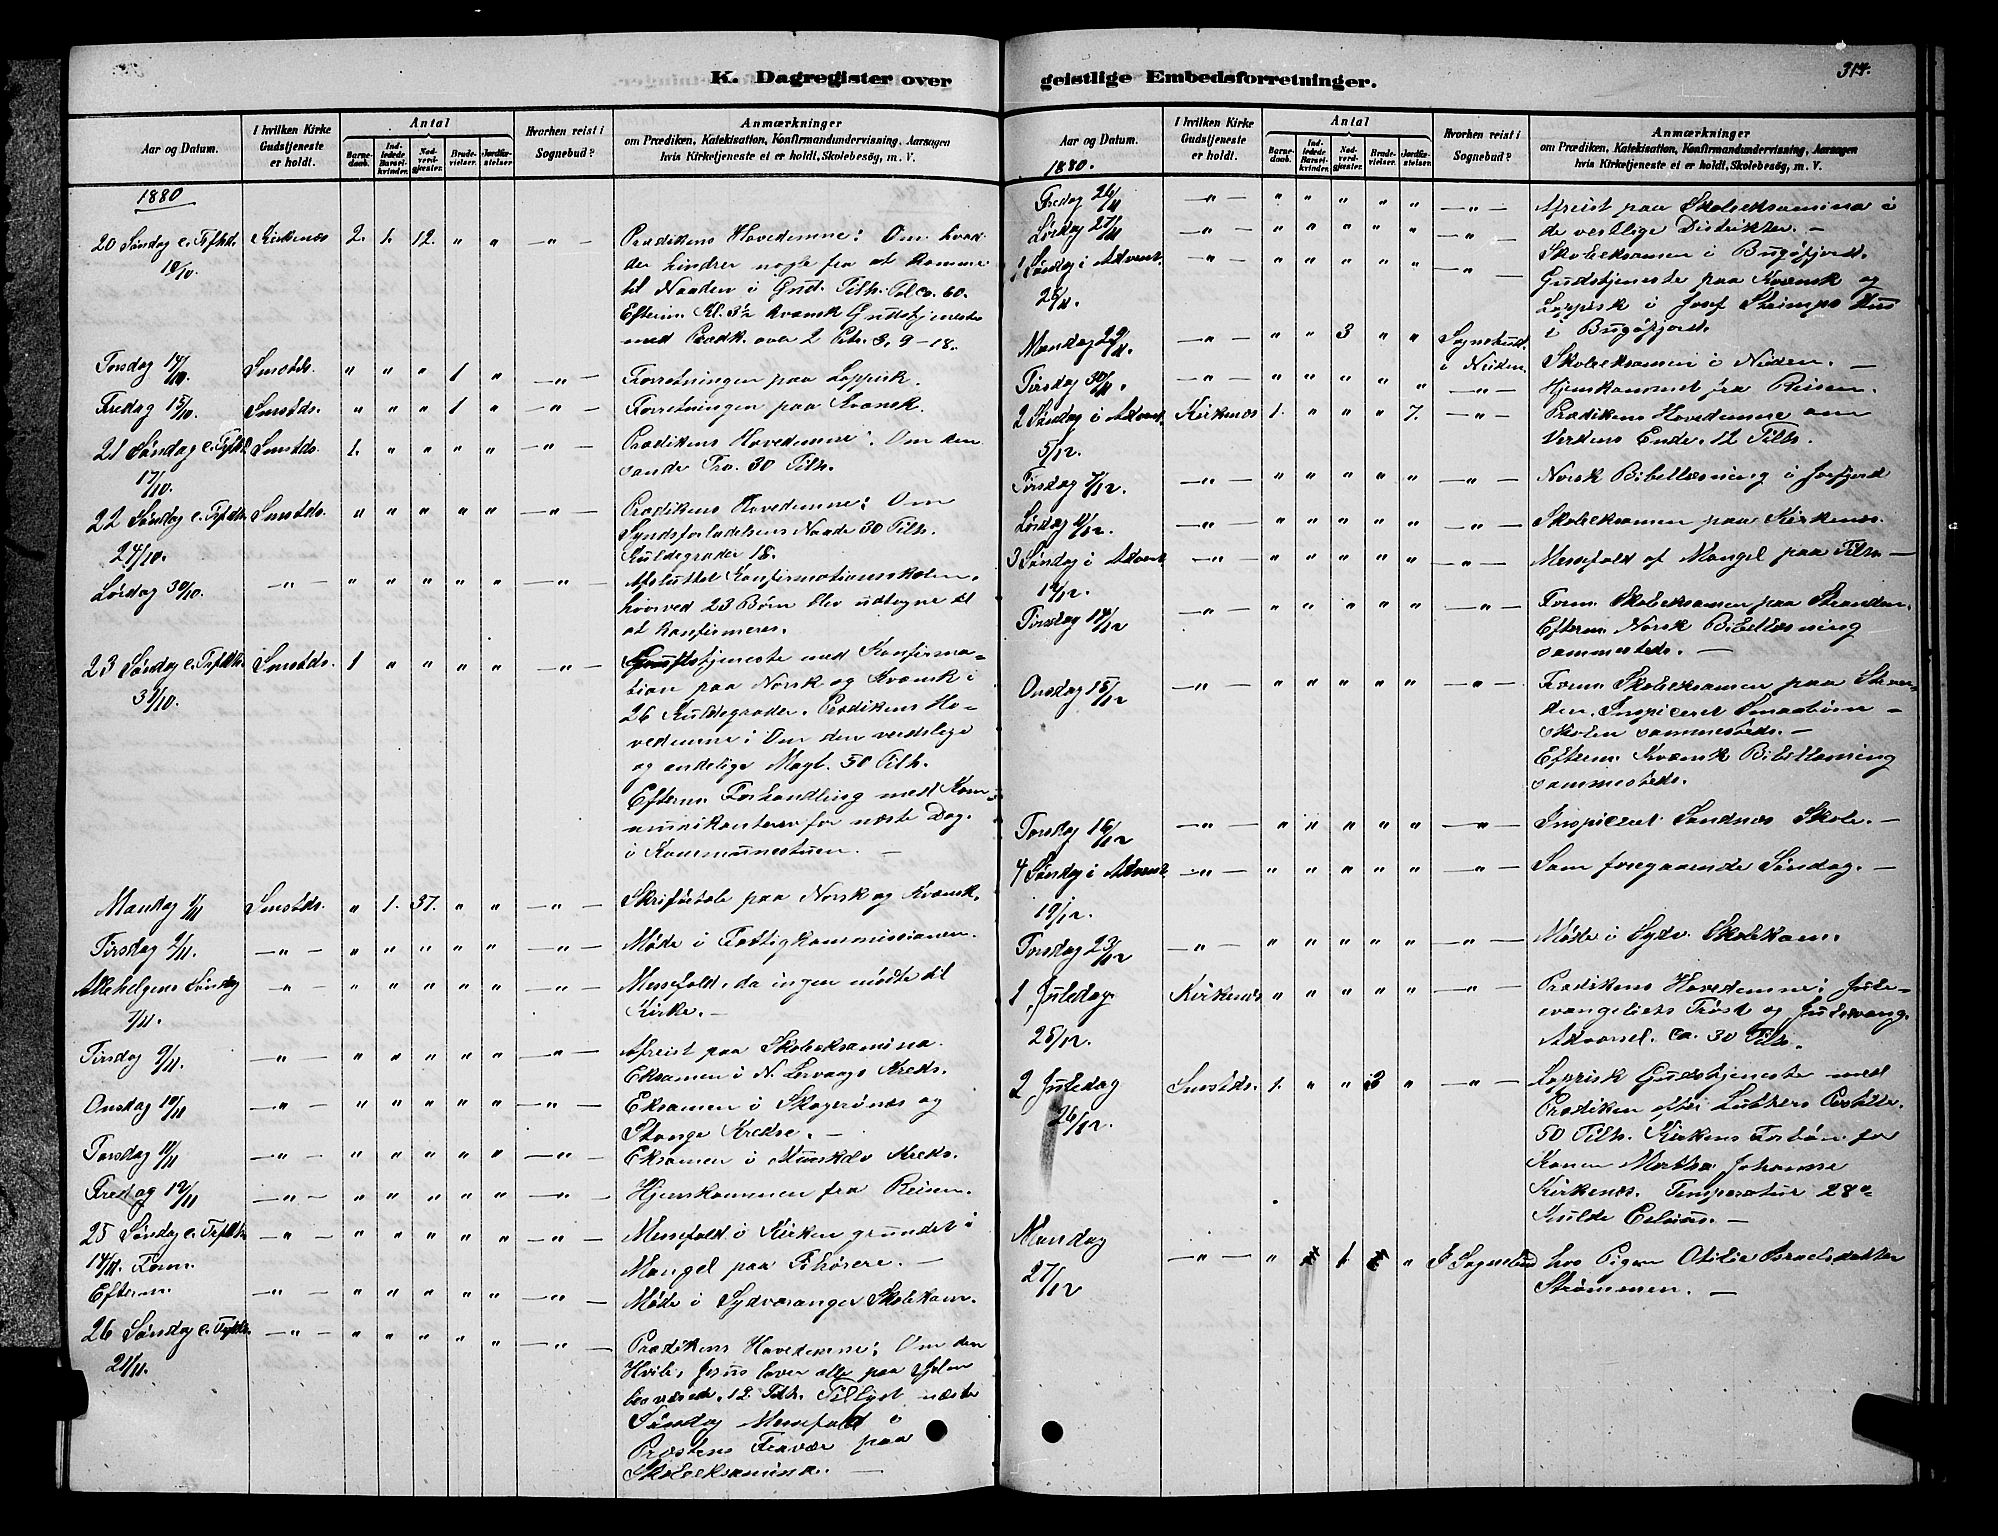 K. Dagregister over
Aar og Datum.
I hvilken Kirke Gudstjeneste er holdt.
Antal
Barnedaab.
Indledede Barselkvinder.
Nadverdgjæster.
Brudevielser.
Jordfæstelser.
Hvorhen reist i Sognebud?
Anmærkninger
om Prædiken, Katekisation, Konfirmandundervisning, Aarsagen
hvis Kirketjeneste ei er holdt, Skolebesøg, m. V.
1880
20 Søndag e. Trfht. Kirkenæs 2. 1. 12. " " —"— Prædikens Hovedemne: Om hvad
10/10. der hindrer nogle fra at komme
til Naaden i Gud. Tilh. Tal ca. 60.
Efterm. Kl. 3½ kvænsk Gudstjeneste
med Prædk. over 2 Petr. 3, 9-18.
Torsdag 14/10. Smstds. " " " 1 " —"— Forretningen paa Lappisk.
Fredag 15/10. Smstds. " " " 1 " —"— Forretningen paa Kvænsk.
21 Søndag e. Trfht. Smstds. 1. " " " " —"— Prædikens Hovedemne: Om den
17/10. sande Tro. 30 Tilh.
22 Søndag e. Trfht. Smstds. " " " " " —"— Prædikens Hovedemne: Om
24/10. Syndsforladelsens Naade 30 Tilh.
Kuldegrader 18.
Lørdag 30/10. —"— " " " " " —"— Afsluttet Konfirmationsskolen,
hvorved 23 Børn blev udtagne til
at konfirmeres.
23 Søndag e. Trfht. Smstds. 1 " " " " —"— Gudstjeneste med Konfirma-
31/10. tion paa Norsk og Kvænsk i
26 Kuldegrader. Prædikens Ho-
vedemne: Om den verdslige
og andelige Magt. 50 Tilh.
Efterm. Forhandling med Kom-
munikanterer for næste Dag
i Kommunestuen. —
Mandag 1/11 Smstds. " 1. 37. " " —"— Skriftetale paa Norsk og Kvænsk.
Tirsdag 2/11. —"— " " " " " —"— Møde i Fattigkommissionen.
Allehelgens Søndag —"— " " " " " —"— Messefald, da ingen mødte til
7/11. Kirke. —
Tirsdag 9/11. —"— " " " " " —"— Afreist paa Skoleeksamina.
Eksamen i N. Lervaags Kreds.
Onsdag 10/11 —"— " " " " " —"— Eksamen i Skogerønæs og
Stonge Kredse. —
Torsdag 11/11 —"— " " " " " —"— Eksamen i Munkelv Kreds.
Fredag 12/11 —"— " " " " " —"— Hjemkommen fra Reisen.
25 Søndag e. Trfht. —"— " " " " " —"— Messefald i Kirken grundet i
14/11. Form. Mangel paa Tilhørere. —
Efterm. —"— " " " " " —"— Møde i Sydvaranger Skolekom.
26 Søndag e. Trfht. —"— " " " " " —"— Prædikens Hovedemne: Om den
21/11. Hvile, Jesus lover alle paa Sjælen
besværede. 12 Tilh. Tillyst næste
Søndag Messefald i
Præstens Fravær paa
Skoleeksamina. —
geistlige Embedsforretninger.
314.
Aar og Datum.
I hvilken Kirke Gudstjeneste er holdt.
Antal
Barnedaab.
Indledede Barselkvinder.
Nadverdgjæster.
Brudevielser.
Jordfæstelser.
Hvorhen reist i Sognebud?
Anmærkninger
om Prædiken, Katekisation, Konfirmandundervisning, Aarsagen
hvis Kirketjeneste ei er holdt, Skolebesøg, m. V.
1880.
Fredag 26/11 —"— " " " " " —"— Afreist paa Skoleeksamina i
Lørdag 27/11 —"— " " " " " —"— de vestlige Distrikter. —
Skoleeksamen i Bugøfjord.
1 Søndag i Advent —"— " " " " " —"— Gudstjeneste paa Kvænsk og
28/11. Lappisk i Josef Hus
i Bugøfjord.
Mandag 29/11. —"— " " 3 " " Sognebud i Neiden. Skoleeksamen i Neiden. —
Tirsdag 30/11. —"— " " " " " —"— Hjemkommet fra Reisen. —
2 Søndag i Advent Kirkenæs 1. " " " 7. —"— Prædikens Hovedemne om
5/12. Verdens Ende. 12 Tilh.
Tirsdag 7/12. —"— " " " " " —"— Norsk Bibellæsning i Jarfjord
Lørdag 11/12. —"— " " " " " —"— Skoleeksamen paa Kirkenæs.
3 Søndag i Advent —"— " " " " " —"— Messefald af Mangel paa Tilh. —
12/12.
Tirsdag 14/12 —"— " " " " " —"— Form. Skoleeksamen paa Stranden.
Efterm. Norsk Bibellæsning
sammesteds. —
Onsdag 15/12 —"— " " " " " —"— Form. Skoleeksamen paa Stran-
den. Inspiceret Smaabørn-
skolen sammesteds. —
Efterm. Kvænsk Bibellæsning
sammesteds.
Torsdag 16/12 —"— " " " " " —"— Inspiceret Sandnæs Skole. —
4 Søndag i Advent —"— " " " " " —"— Som foregaaende Søndag. —
19/12.
Torsdag 23/12 —"— " " " " " —"— Møde i Sydv. Skolekom.
1 Juledag. Kirkenæs " " " " " —"— Prædikens Hovedemne: Jule-
25/12. evangeliets Trøst og Juleevang.
Advarsel. ca. 30 Tilh.
2 Juledag Smstds. 1. " " 2 " —"— Lappisk Gudstjeneste med
26/12. Prædiken efter Luthers Postille.
50 Tilh. Kirkens Forbøn for
Konen Martha Johanne
Kirkenæs. Temperatur 28°
Kulde Celsius. —
Mandag 27/12 —"— " 1 " I Sognebud hos Pigen Otilie Israelsdatter
Strømmen. —